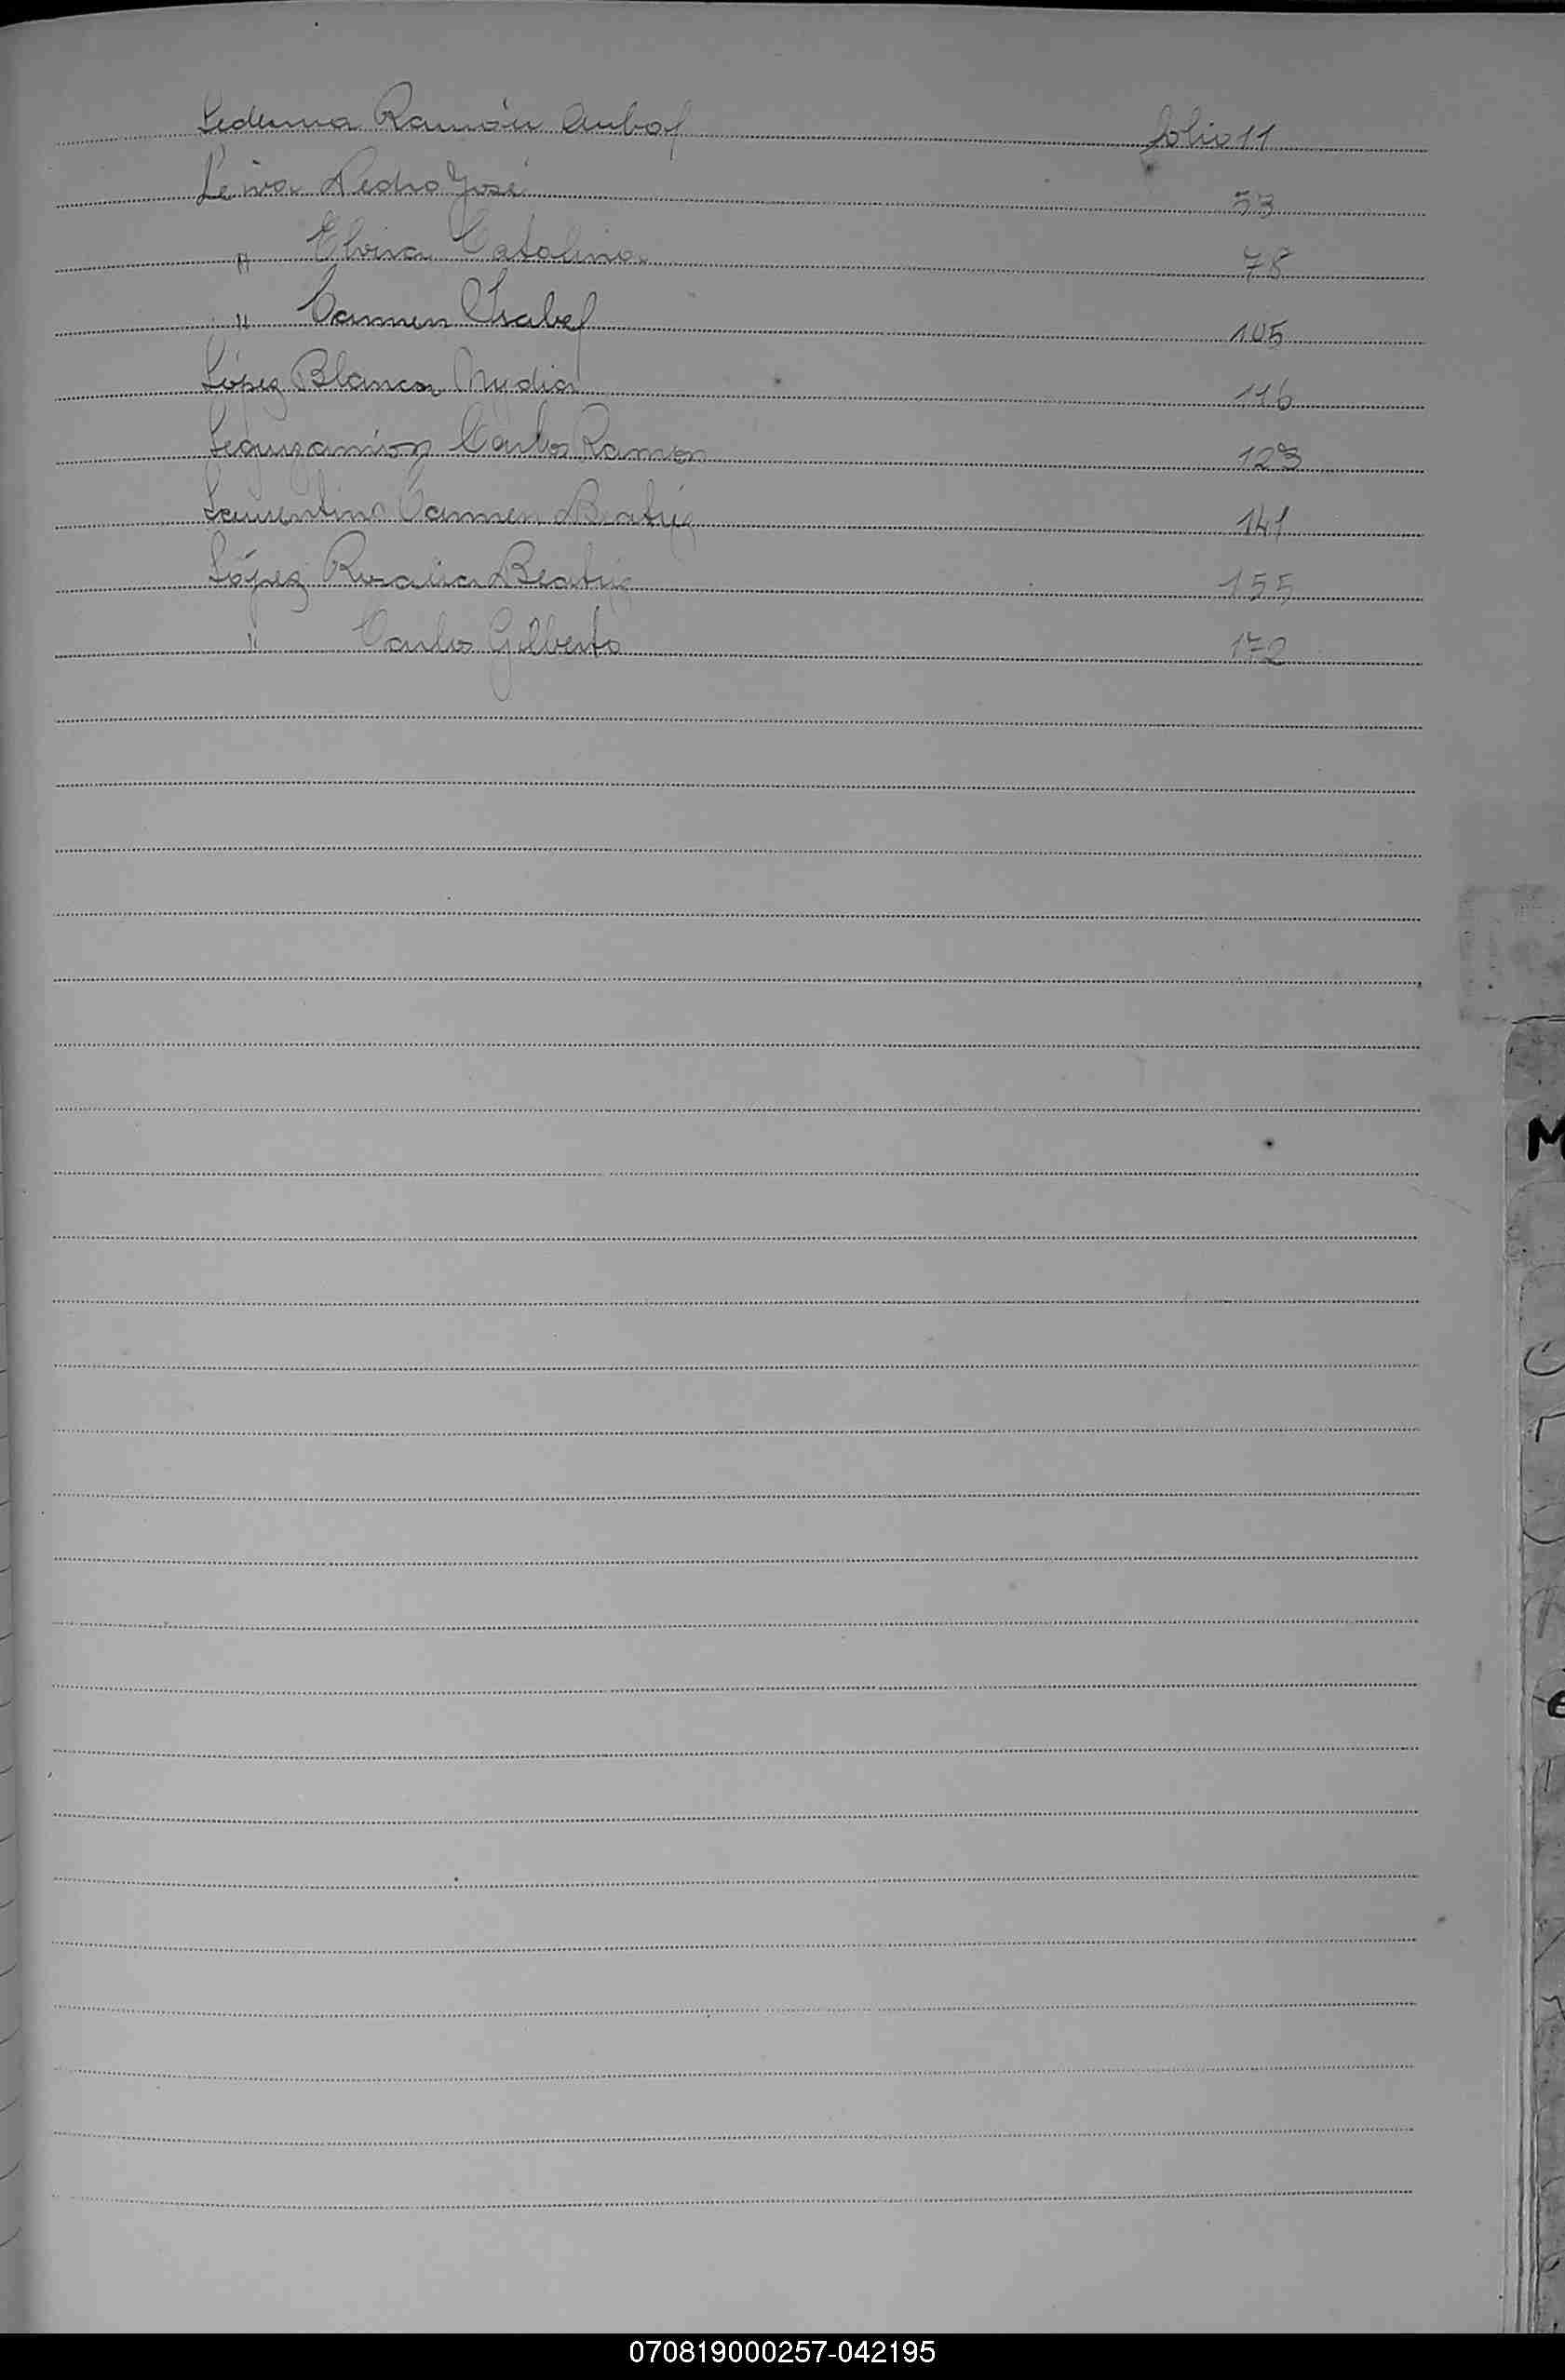 Ledesma Ramón Anbal folio 11
Leiva Pedro José 53
" Elvira Catalina 78
" Carmen Isabel 105
López Blanca Nydia 116
Leguizamón Carlos Ramon 123
Laurentino Carmen Beatriz 141
López Rosalia Beatriz 155
" Carlos Gilberto 172
M
070819000257-042195